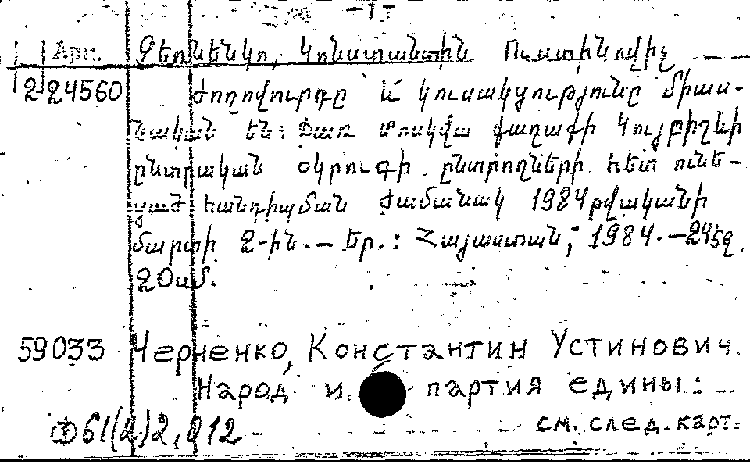 Арм. Չեռնենկո, Կոնստանտին Ուստինովիչ
2 24560 Ժողովուրդը և կուսակցությունը միաս-
նական են: Ճառ Մոսկվա քաղաքի Կույբիշևի
ընտրական օկրուգի ընտրողների հետ ունե-
ցած հանդիպման ժամանակ 1984 թվականի
մարտի 2-ին.— Եր.: Հայաստան, 1984.—24 էջ.
20 սմ.
59033 Черненко, Константин Устинович.
Народ и партия едины:
Ф61(2)2,012 см. след. карт.